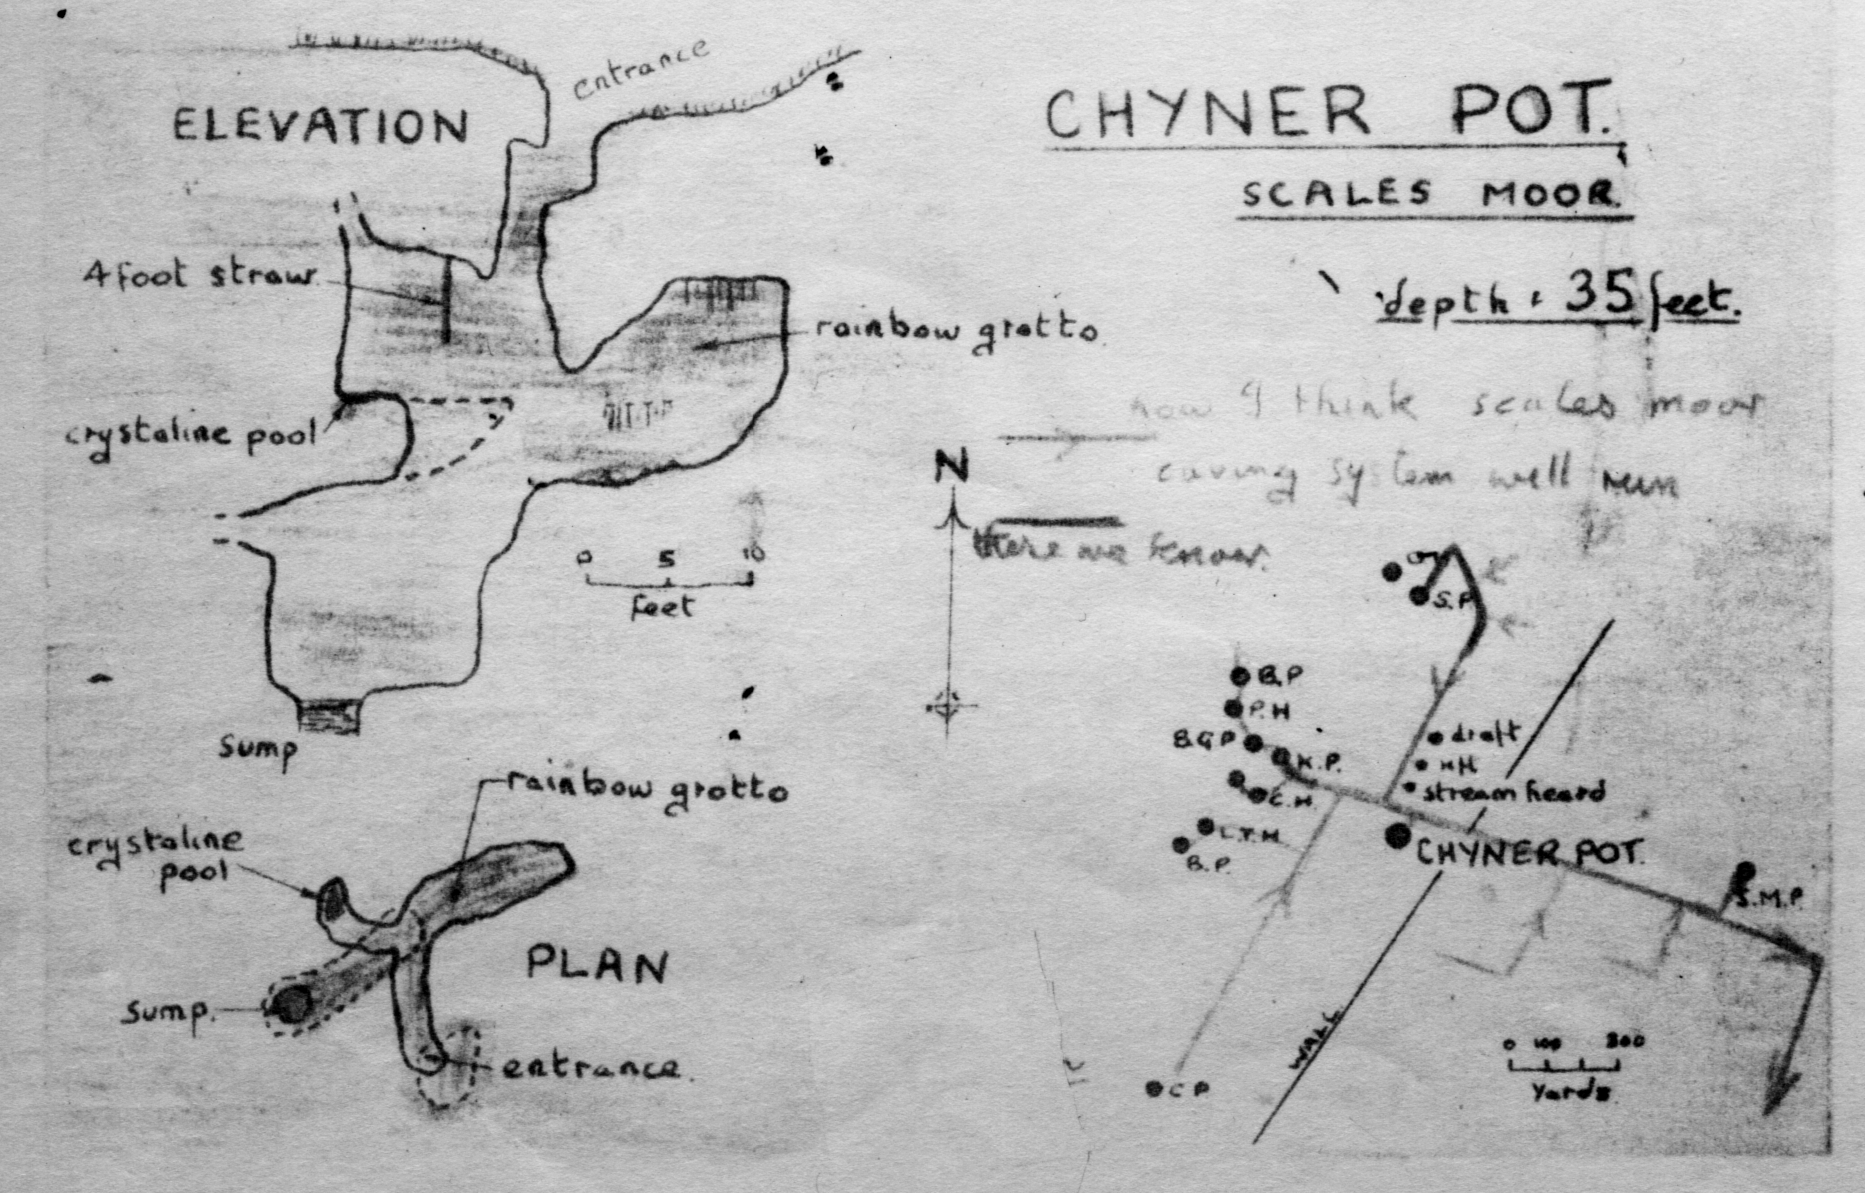 ELEVATION
entrance
4 foot straw
rainbow grotto
crystaline pool
0 5 10
feet
sump
CHYNER POT.
SCALES MOOR.
depth : 35 feet.
how I think scales moor
caving system will run
there we know.
N
S.P
B.P
P.H
B.G.P
K.P.
C.H.
L.T.H
B.P.
draft
HH
stream heard
CHYNER POT.
S.M.P.
C P
WALL
0 100 300
Yards
rainbow grotto
crystaline
pool
PLAN
sump.
entrance.